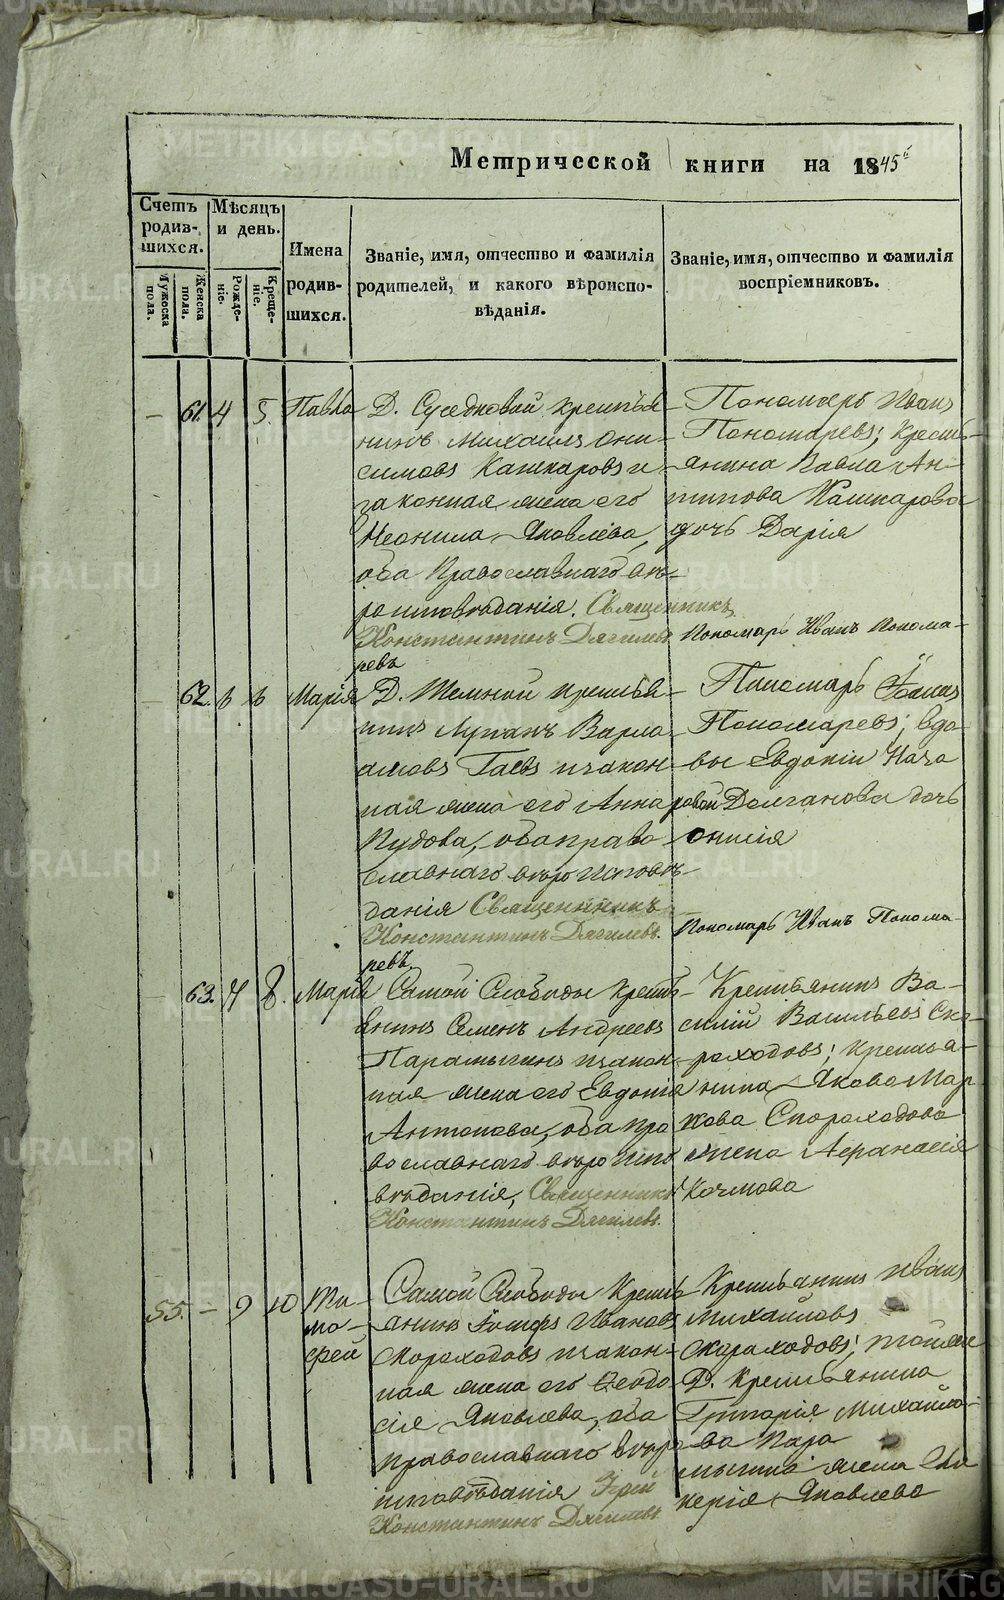 Метрической книги на 1845
Счетъ родив-шихся.
Мѣсяцъ и день.
Мужеска пола.
Женска пола.
Рожде-ніе.
Креще-ніе.
Имена родив-шихся.
Званіе, имя, отчество и фамилія
родителей, и какого вѣроиспо-
вѣданія.
Званіе, имя, отчество и фамилія
воспріемниковъ.
— 61. 4 5. Павла
Д. Суседковой крестья-
нинъ Михаилъ Они-
симовъ Кашкаровъ и
законная жена его
Неонила Яковлева,
оба Православнаго вѣ-
роисповѣданія. Священникъ
Константинъ Дягилевъ.
Пономарь Иванъ
Пономаревъ; кресть-
янина Вавла Ан-
типова Кашкарова
дочь Дарія
Пономарь Иванъ Понома-
ревъ
— 62. 6 6 Марія
Д. Темной крестья-
нинъ Лупанъ Варла-
амовъ Гаевъ и закон-
ная жена его Анна
Пудова, оба право-
славнаго вѣроисповѣ-
данія Священникъ
Константинъ Дягилевъ.
Пономарь Іоаннъ
Пономаревъ; вдо-
вы Евдокіи
Долганова дочь
Онисія
Пономарь Иванъ Понома-
ревъ.
— 63. 7 8. Марія
Самой Слободы крестъ-
янинъ Семенъ Андреевъ
Парамыгинъ и закон-
ная жена его Евдокія
Антонова, оба пра-
вославнаго вѣроиспо-
вѣданія, Священникъ
Константинъ Дягилевъ.
Крестьянинъ Ва-
силій Васильевъ Ско-
роходовъ; крестья-
нина Якова Мар-
кова Скороходова
жена Афанасія
55. — 9 10 Ти-
мо-
фей
Самой Слободы Кресть-
янинъ Іосифъ Ивановъ
Скороходовъ и закон-
ная жена его Ѳеодо-
сія Яковлева, оба
православнаго вѣро-
исповѣданія Іерей
Константинъ Дягилевъ.
Крестьянинъ Иванъ
Михайловъ
Скороходовъ; тойже
Д. Крестьянина
Григорія Михайло-
ва Пара-
мыгина жена Гли-
керія Яковлева